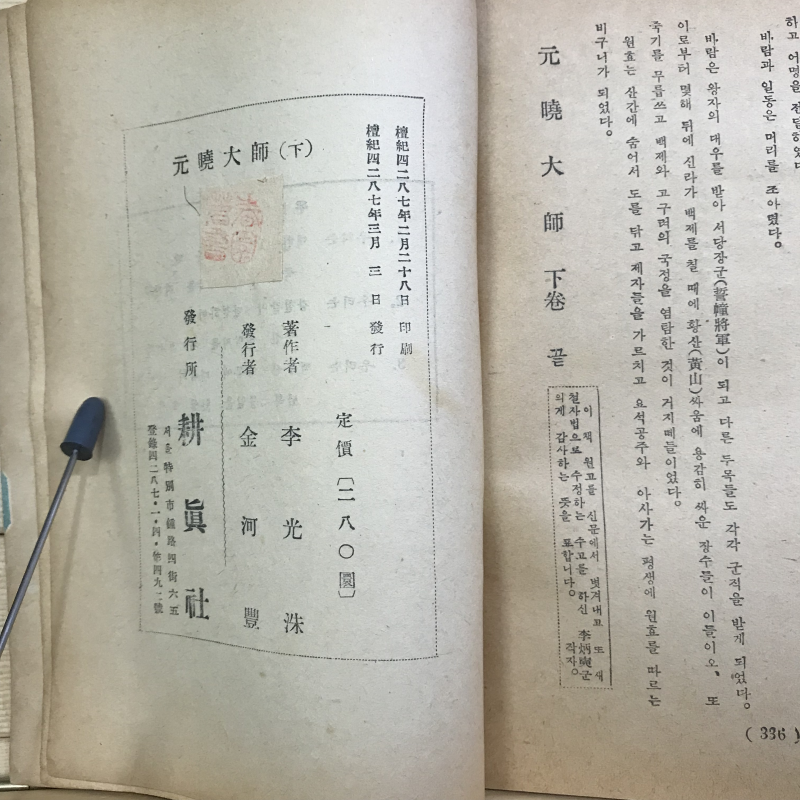 하고 어명을 전달하였다
바람과 일동은 머리를 조아렸다。
바람은 왕자의 대우를 받아 서당장군(誓幢將軍)이 되고 다른 두목들도 각각 군직을 받게 되었다。
이로부터 몇해 뒤에 신라가 백제를 칠 때에 황산(黃山)싸움에 용감히 싸운 장수들이 이들이오、또
죽기를 무릅쓰고 백제와 고구려의 국정을 염탐한 것이 거지떼들이었다。
원효는 산간에 숨어서 도를 닦고 제자들을 가르치고 요석공주와 아사가는 평생에 원효를 따르는
비구니가 되었다。
元曉大師 下卷 끝
이 책 원고를 신문에서 벗겨내고 또 새
철자법으로 수정하는 수고를 하신 李炳 君
의게 감사하는 뜻을 표합니다。 작자。
(336)
檀紀四二八七年二月二十八日 印刷
檀紀四二八七年三月 三 日 發行
定價〔二八〇圜〕
著作者 李光洙
發行者 金河豐
發行所 耕眞社
서울特別市鍾路四街六五
登錄四二八七・一・四・第四九二號
元曉大師(下)